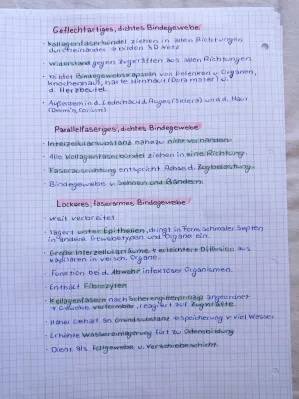 Geflechtartiges, dichtes Bindegewebe
· Kollagenfaserbündel ziehen in allen Richtungen
durcheinander → bilden 3D Netz
· Widerstand gegen Zugkräften aus allen Richtungen
· bildet Bindegewebskapseln von Gelenken u. Organen,
Knochenhaut, harte Hirnhaut (Dura mater) u.
d. Herzbeutel.
· Außerdem in d. Lederhaut d. Auges (Sclera) und d. Haut
(Dermis, Corium)
Parallelfaseriges, dichtes Bindegewebe
· Interzellularsubstanz nahezu nicht vorhanden.
· Alle Kollagenfaserbündel ziehen in eine Richtung.
· Faserausrichtung entspricht Achse d. Zugbelastung.
· Bindegewebe v. Sehnen und Bändern.
Lockeres, faserarmes Bindegewebe
· weit verbreitet
· lagert unter Epithelien, dringt in Form schmaler Septen
in andere Gewebetypen und Organe ein.
· Große Interzellularräume → erleichterte Diffusion aus
Kapillaren in versch. Organe.
· Funktion bei d. Abwehr infektiöser Organismen.
· Enthält Fibrozyten
· Kollagenfasern nach Scherengitterprinzip angeordnet
→ Gewebe verformbar, reagiert auf Zugkräfte.
· Hoher Gehalt an Grundsubstanz → Speicherung v. viel Wasser
· Erhöhte Wassereinlagerung führt zu Ödembildung
· Dient als Fettgewebe u. Verschiebeschicht.